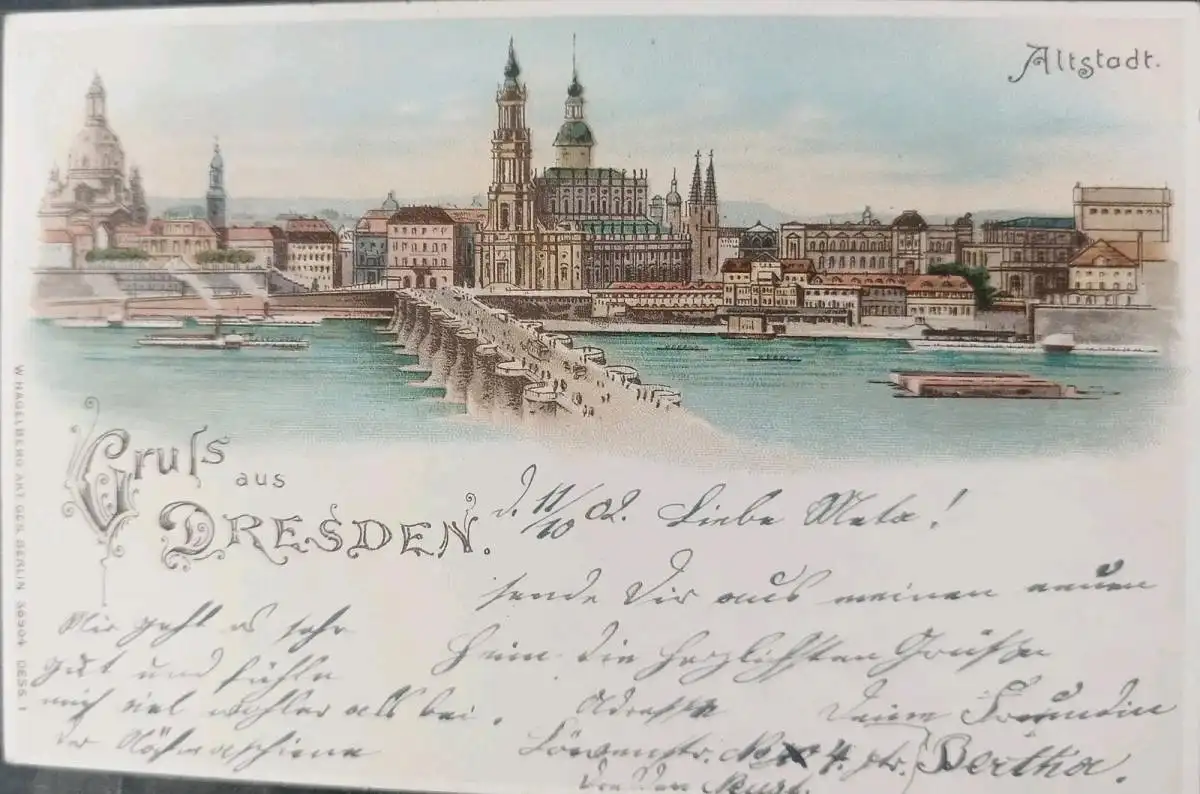 Altstadt.
Gruſs
aus
DRESDEN.
W. HAGELBERG AKT. GES. BERLIN 36904 DESS. 1
d. 11/10 02. Liebe Meta!
sende Dir aus meinen neuen
Heim die herzlichsten Grüße
Mir geht es sehr
gut und fühle
mich viel wohler als bei
der Nähmaschiene
Adresse
Löwenstr. No 4. ptr.
Deine Freundin
Bertha.